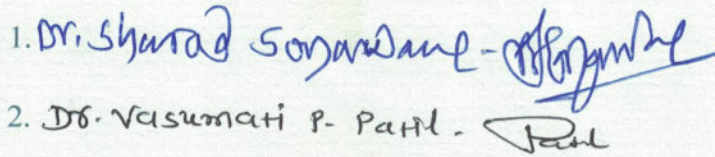 1. Dr. Sharad Sonawane -
2. Dr. Vasumati P. Patil. Patil